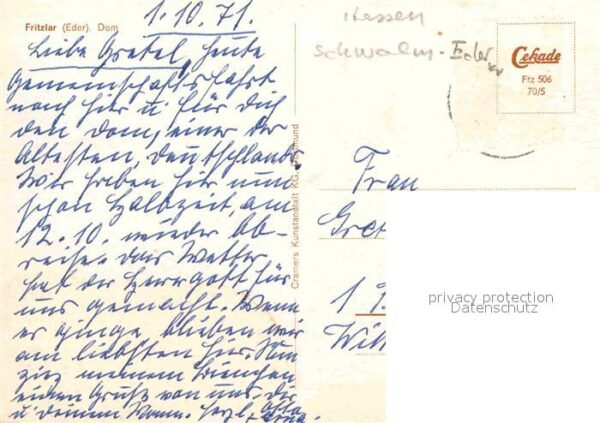 1.10.71.
Fritzlar (Eder). Dom
Liebe Gretel, heute
Gemeinschaftsfahrt
nach hier u. für Dich
den Dom, einer der
Ältesten, Deutschlands
Wir haben hier nun
schon Halbzeit, am
12.10. wieder Ab-
reise. das Wetter
hat der Herrgott für
uns gemacht. Wenn
es ginge blieben wir
am liebsten hier. Nun
meinem
einen Gruß von uns, Dir
u. Deinem Mann. Herzl.
Hessen
Schwalm-Eder
Cekade
Ftz 506
70/5
Cramers Kunstanstalt KG, Dortmund
Frau
Gret
1
privacy protection
Datenschutz